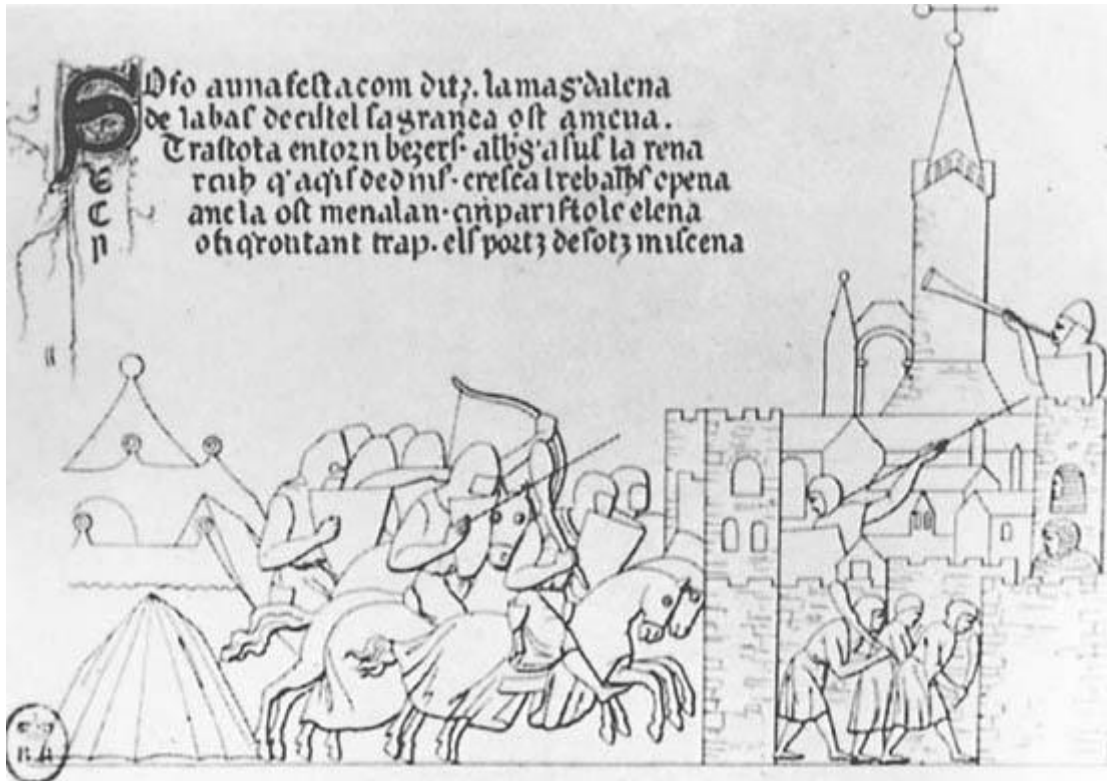 Sofo aunafesta com ditz. lamag'dalena
de labas decistel sagranda ost amena.
Trastota entorn bezers. albg'asus la rena
E rcuh q'aq'sdedins. cresca trebalhs epena
C anc la ost menalau. cui paris tolc elena
N ofiq'ron tant trap. els portz desotz miscena